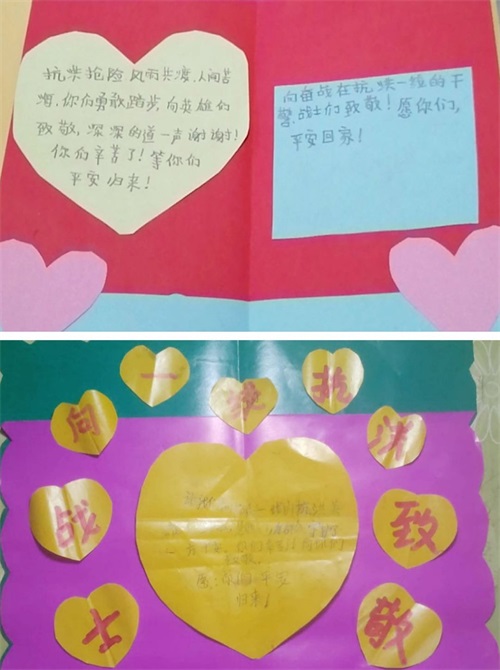 抗洪抢险风雨共渡,人间苦
难,你们勇敢踏步,向英雄们
致敬,深深的道一声谢谢!
你们辛苦了!等你们
平安归来!
向奋战在抗洪一线的干
警战士们致敬!愿你们,
平安回家!
向一线抗洪
战士
致敬
平安
归来!